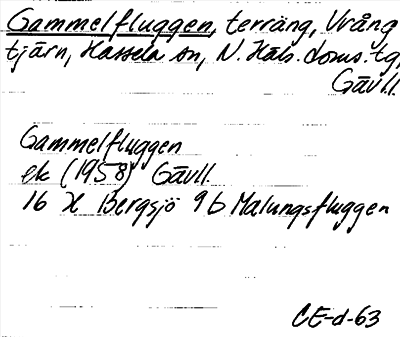 Gammelfluggen, terräng, Vrång
tjärn, Hassela sn, N. Häls. doms. tg,
Gävll.
Gammelfluggen
ek (1958) Gävll.
16 H Bergsjö 9 b Malungsfluggen
CE-d-63